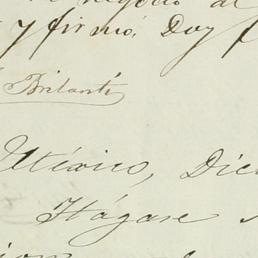 negocio al
y firmó. Doy f
Brilanti
México, Dic
Hágase